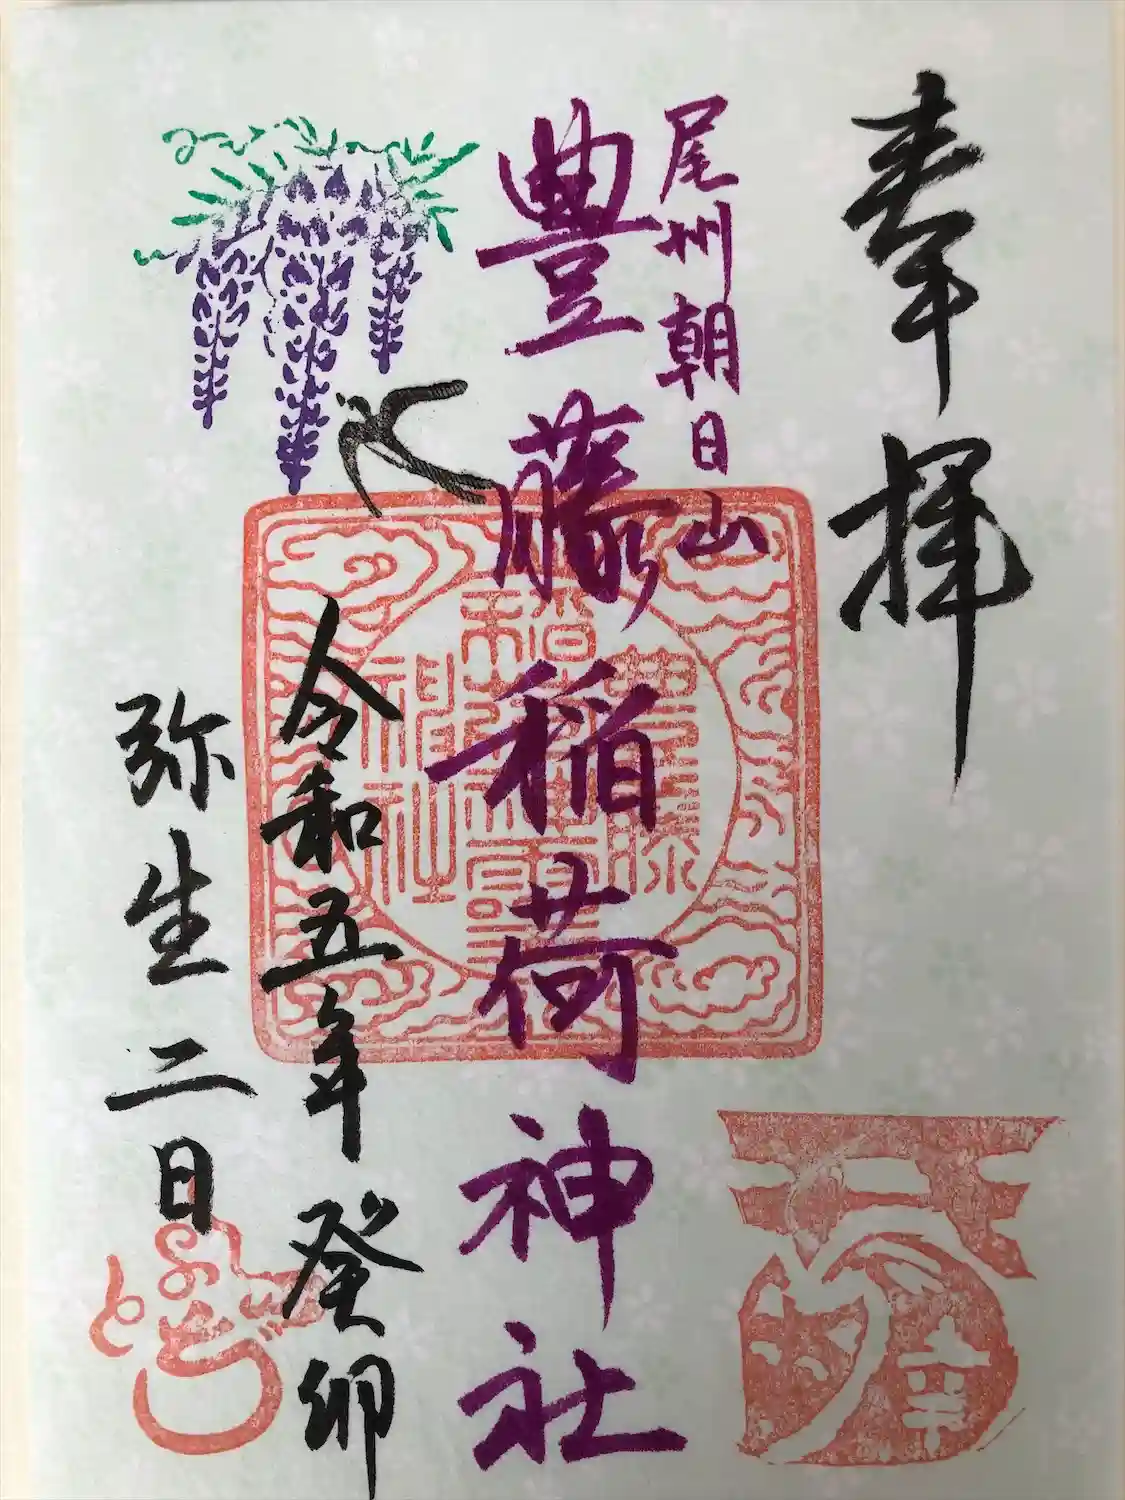 奉拝
尾州朝日山
豊藤稲荷神社
令和五年癸卯
弥生二日